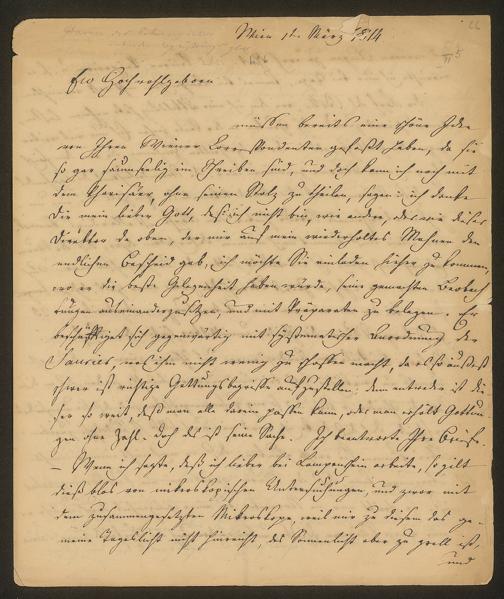 Wien 1t März 1814
Ew Hochwohlgeboren
müssen bereits eine schöne Idee
von Ihren Wiener Correspondenten gefaßt haben, da sie
so gar saumselig im Schreiben sind, und doch kann ich noch mit
dem Pharisäer, ohne seinen Stolz zu theilen, sagen: ich danke
Dir mein lieber Gott, daß ich nicht bin, wie andere, oder wie dieser
Direktor da oben, der mir auf mein wiederholtes Mahnen den
endlichen Bescheid gab, ich möchte Sie einladen hieher zu kommen,
wo er die beste Gelegenheit haben würde, seine gemachten Beobach
tungen auseinanderzusetzen, und mit Präparaten zu belegen. Er
beschäftiget sich gegenwärtig mit systematischer Anordnung der
Saurier, was ihm nicht wenig zu schaffen macht, da es so äußerst
schwer ist richtige Gattungsbegriffe aufzustellen: denn entweder ist die
ser so weit, daß man alle darein passen kann, oder man erhält Gattun
gen ohne Zahl. Doch das ist seine Sache. Ich beantworte Ihre Briefe.
— Wenn ich sagte, daß ich lieber bei Lampenschein arbeite, so gilt
dieß blos von mikroskopischen Untersuchungen, und zwar mit
dem zusammengesetzten Mikroskope, weil mir zu diesem das ge-
meine Tageslicht nicht hinreicht, das Sonnenlicht aber zu grell ist,
und